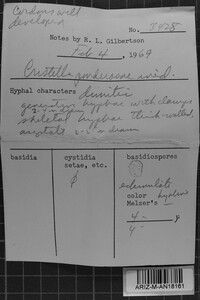 Cordons well
developed
No. 8928
Notes by R. L. Gilbertson
Feb 4, 1969
Cristella
Hyphal characters dimitic
generative hyphae with clamps
skeletal hyphae thick-walled,
aseptate
basidia
cystidia
setae, etc.
basidiospores
φ
echinulate
color hyaline
Melzer's –
4 -
4 -
ARIZ-M-AN18161